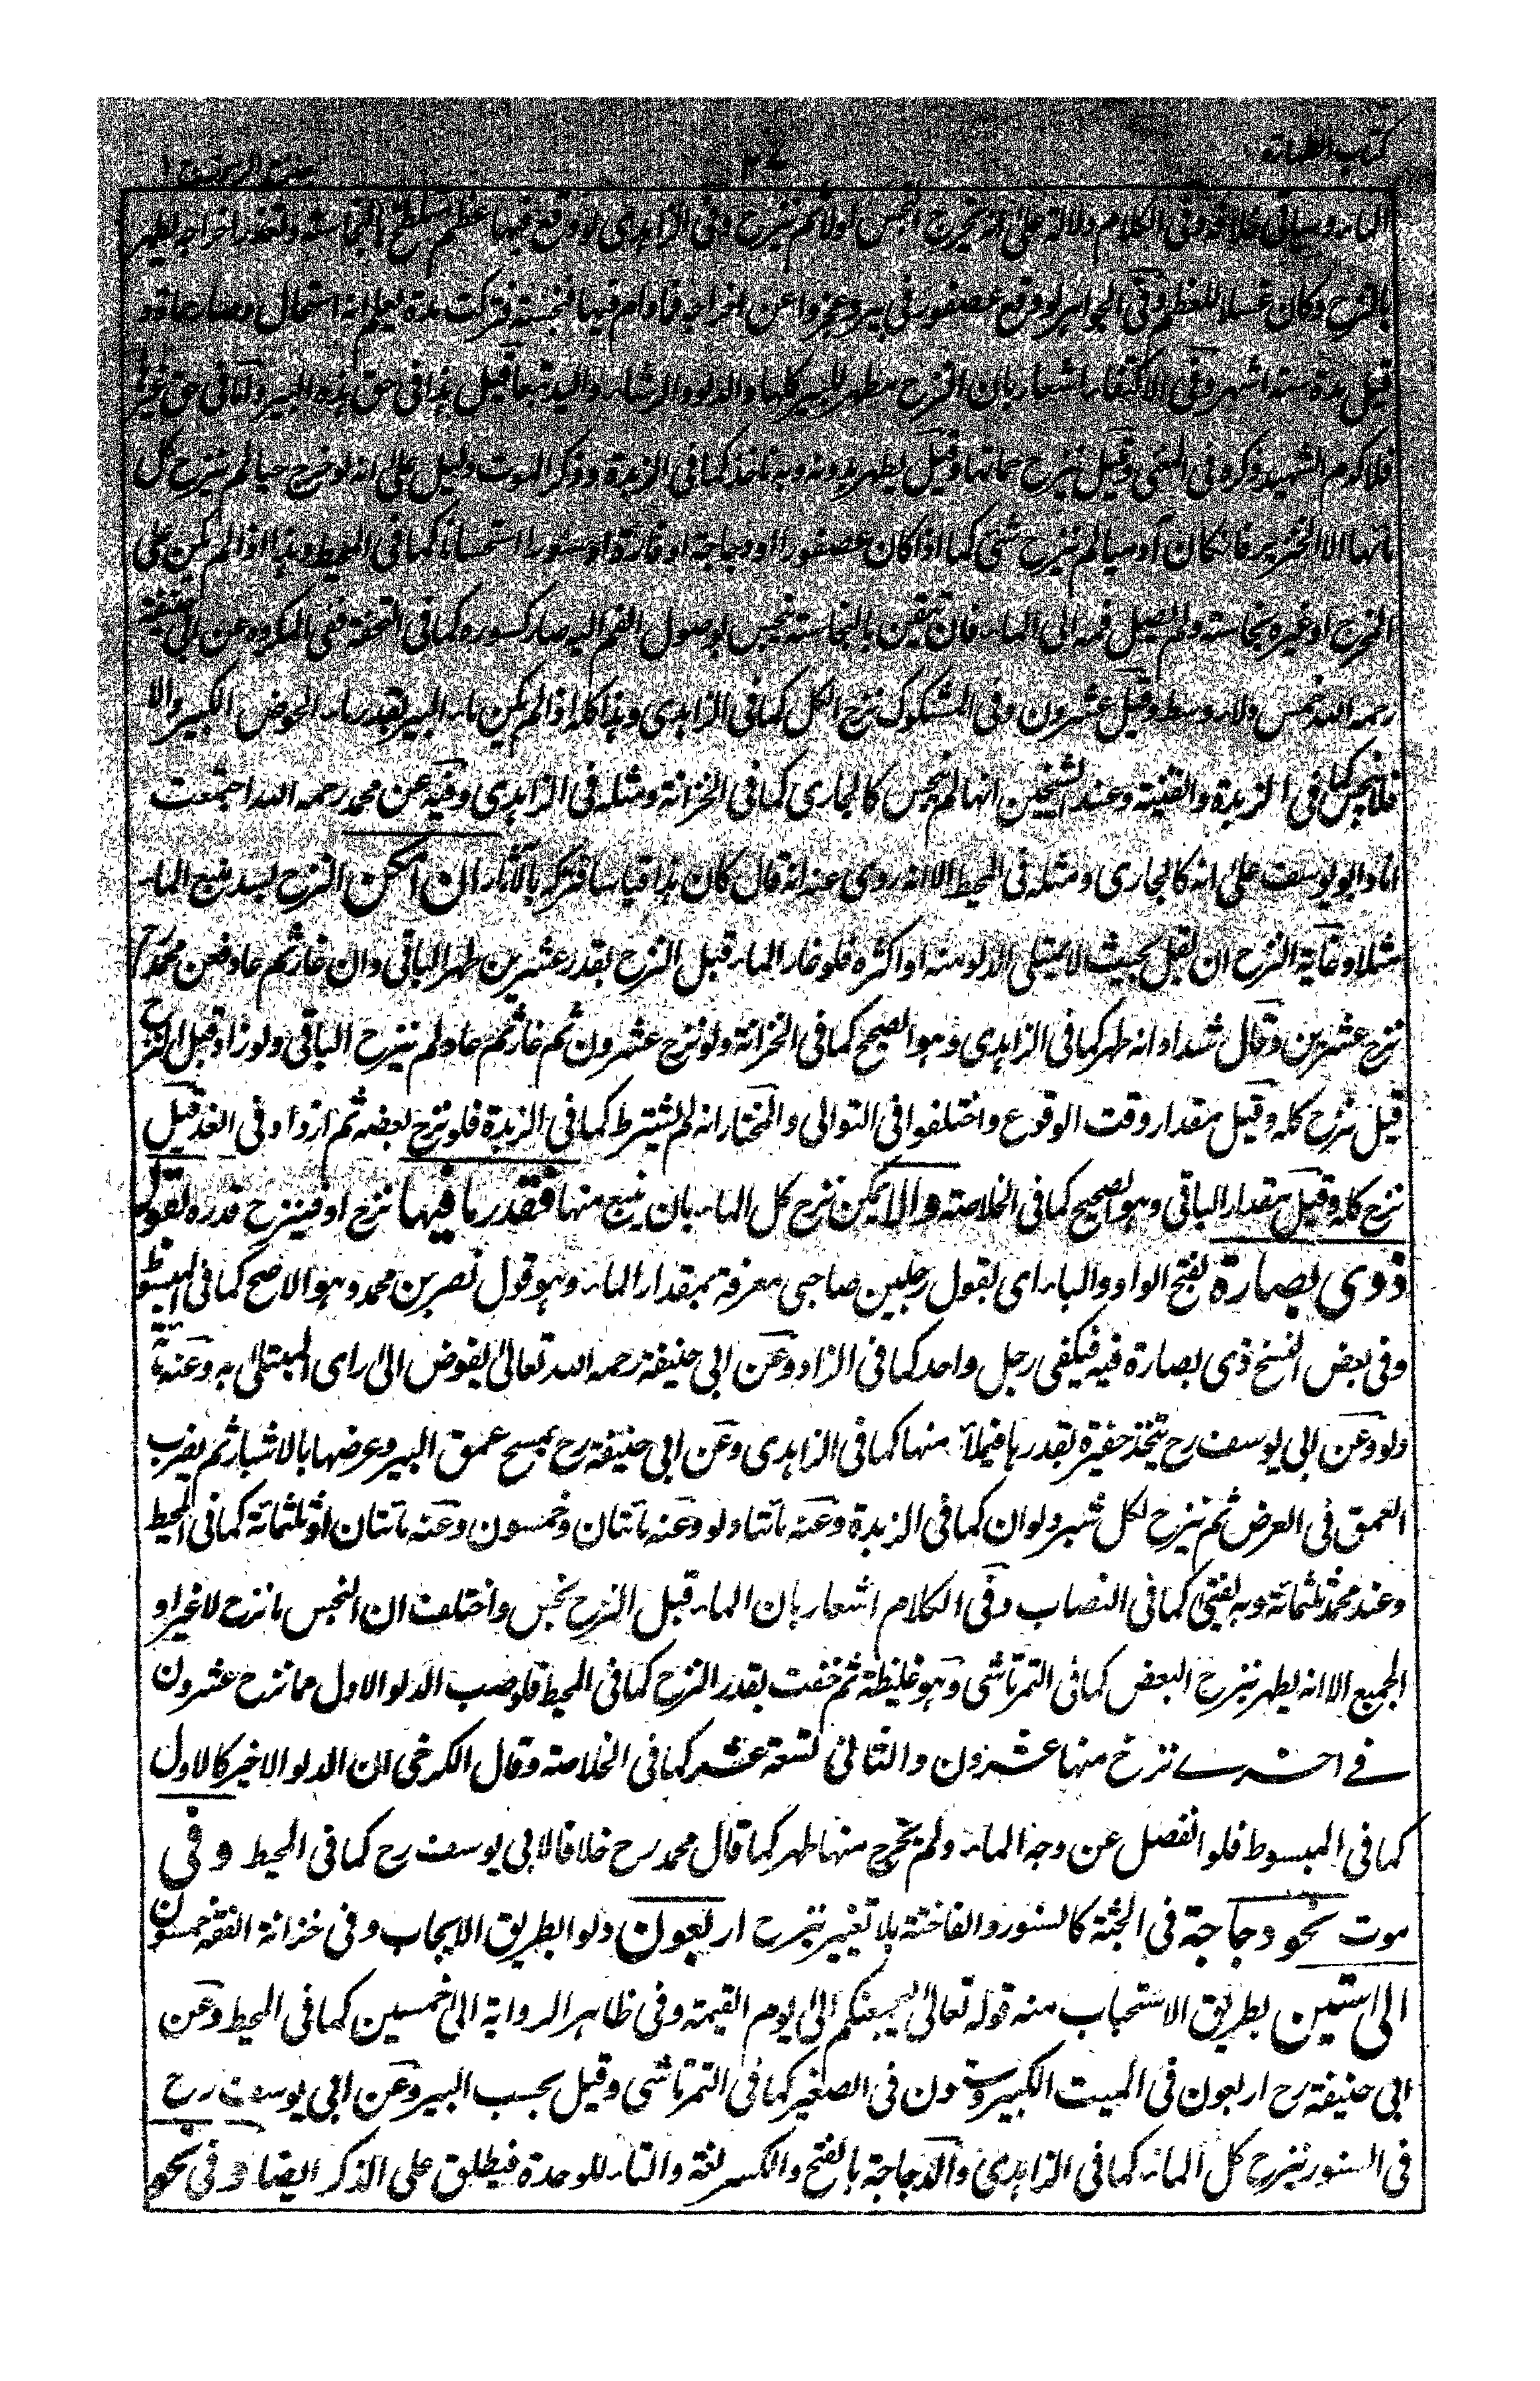 كتاب الطهارة
الماء وسياتى خلافه وفى الكلام دلالة على انه يخرج النجس اولا ثم ينزح وفى الزاهدى لو وقع فيها عظم تلطخ بالنجاسة وتعذر اخراجه يطهر
بالنزح وكان غسلا للعظم وفى الجواهر لو وقع عصفور فى بير وعجزوا عن اخراجه فمادام فيها فنجسة فتركت مدة يعلم انه استحال وصار حمأة و
قيل مدة ستة اشهر وفى الاكتفاء اشعار بان النزح مطهر للبير كلها والدلو والرشاء واليد تبعا قيل هذا فى حق هذه البير واما فى حق غيرها
فلا كدم الشهيد ذكره فى المنى وقيل ينزح حمأتها وقيل يطهر بدونه وبه ناخذ كما فى الزبدة وذكر الموت دليل على انه لو خرج حيا لم ينزح كل
مائها الا الخنزير فان كان آدميا لم ينزح شئ كما اذا كان عصفورا او دجاجة او فارة او سنورا استحسانا كما فى المحيط وهذا اذا لم يكن على
المخرج او غيره نجاسة ولم يصل فمه الى الماء فان تيقن بالنجاسة نجس بوصول الفم اليه صار كسوره كما فى التحفة ففى المكروه عن ابى حنيفة
رحمه الله خمس دلاء وسط وقيل عشرون وفى المشكوك نزح الكل كما فى الزاهدى وهذا كله اذا لم يكن ماء البير بقدر ماء الحوض الكبير والا
فلا نجس كما فى الزبدة والقنية وعند الشيخين انها لم نجس كالجارى كما فى الخزانة ومثله فى الزاهدى وفيه عن محمد رحمه الله اجتمعت
انا وابو يوسف على انه كالجارى ومثله فى المحيط الا انه روى عنه انه قال كان هذا قياسا فتركه بالآثار ان امكن النزح لسد منبع الماء
مثلا وغاية النزح ان يقل بحيث لا يمتلى الدلو منه او اكثره فلو غار الماء قبل النزح بقدر عشرين طهر الباقى وان غار ثم عاد فعن محمد رح
نزح عشرين وقال شداد انه طهر كما فى الزاهدى وهو الصحيح كما فى الخزانة ولو نزح عشرون ثم غار ثم عاد لم ينزح الباقى ولو زاد قبل النزح
قيل نزح كله وقيل مقدار وقت الوقوع واختلفوا فى التوالى والمختار انه لم يشترط كما فى الزبدة فلو نزح بعضه ثم ازداد فى الغد قيل
نزح كله وقيل مقدار الباقى وهو الصحيح كما فى الخلاصة والا يمكن نزح كل الماء بان ينبع منها فقدر ما فيها نزح او فينزح قدره لقول
ذوى بصارة بفتح الواو والباء اى بقول رجلين صاحبى معرفة بمقدار الماء وهو قول نصر بن محمد وهو الاصح كما فى المبسوط
وفى بعض النسخ ذى بصارة فيه فيكفى رجل واحد كما فى الزاد وعن ابى حنيفة رحمه الله تعالى يفوض الى راى المبتلى به وعنه مائة
دلو وعن ابى يوسف رح يتخذ حفيرة بقدرها فيملأ منها كما فى الزاهدى وعن ابى حنيفة رح يمسح عمق البير وعرضها بالاشبار ثم يضرب
العمق فى العرض ثم ينزح لكل شبر دلوان كما فى الزبدة وعنه مائتا دلو وعنه مائتان وخمسون وعنه مائتان او ثلثمائة كما فى المحيط
وعند محمد ثلثمائة وبه يفتى كما فى النصاب وفى الكلام اشعار بان الماء قبل النزح نجس واختلف ان النجس ما نزح لا غير او
الجميع الا انه يطهر بنزح البعض كما فى التمرتاشى وهو غليظة ثم خفت بقدر النزح كما فى المحيط فلو صب الدلو الاول مما نزح عشرون
فى اخرى نزح منها عشرون والثانى تسعة عشر كما فى الخلاصة وقال الكرخى ان الدلو الاخير كالاول
كما فى المبسوط فلو انفصل عن وجه الماء ولم يخرج منها طهر كما قال محمد رح خلافا لابى يوسف رح كما فى المحيط وفى
موت نحو دجاجة فى الجثة كالسنور والفاختة بلا تغير ينزح اربعون دلوا بطريق الايجاب وفى خزانة الفقه خمسون
الى ستين بطريق الاستحباب منه قوله تعالى ليجمعنكم الى يوم القيمة وفى ظاهر الرواية الى خمسين كما فى المحيط وعن
ابى حنيفة رح اربعون فى الميت الكبير وستون فى الصغير كما فى التمرتاشى وقيل بحسب البير وعن ابى يوسف رح
فى السنور نزح كل الماء كما فى الزاهدى والدجاجة بالفتح والكسر لغة والتاء للوحدة فيطلق على الذكر ايضا وفى نحو